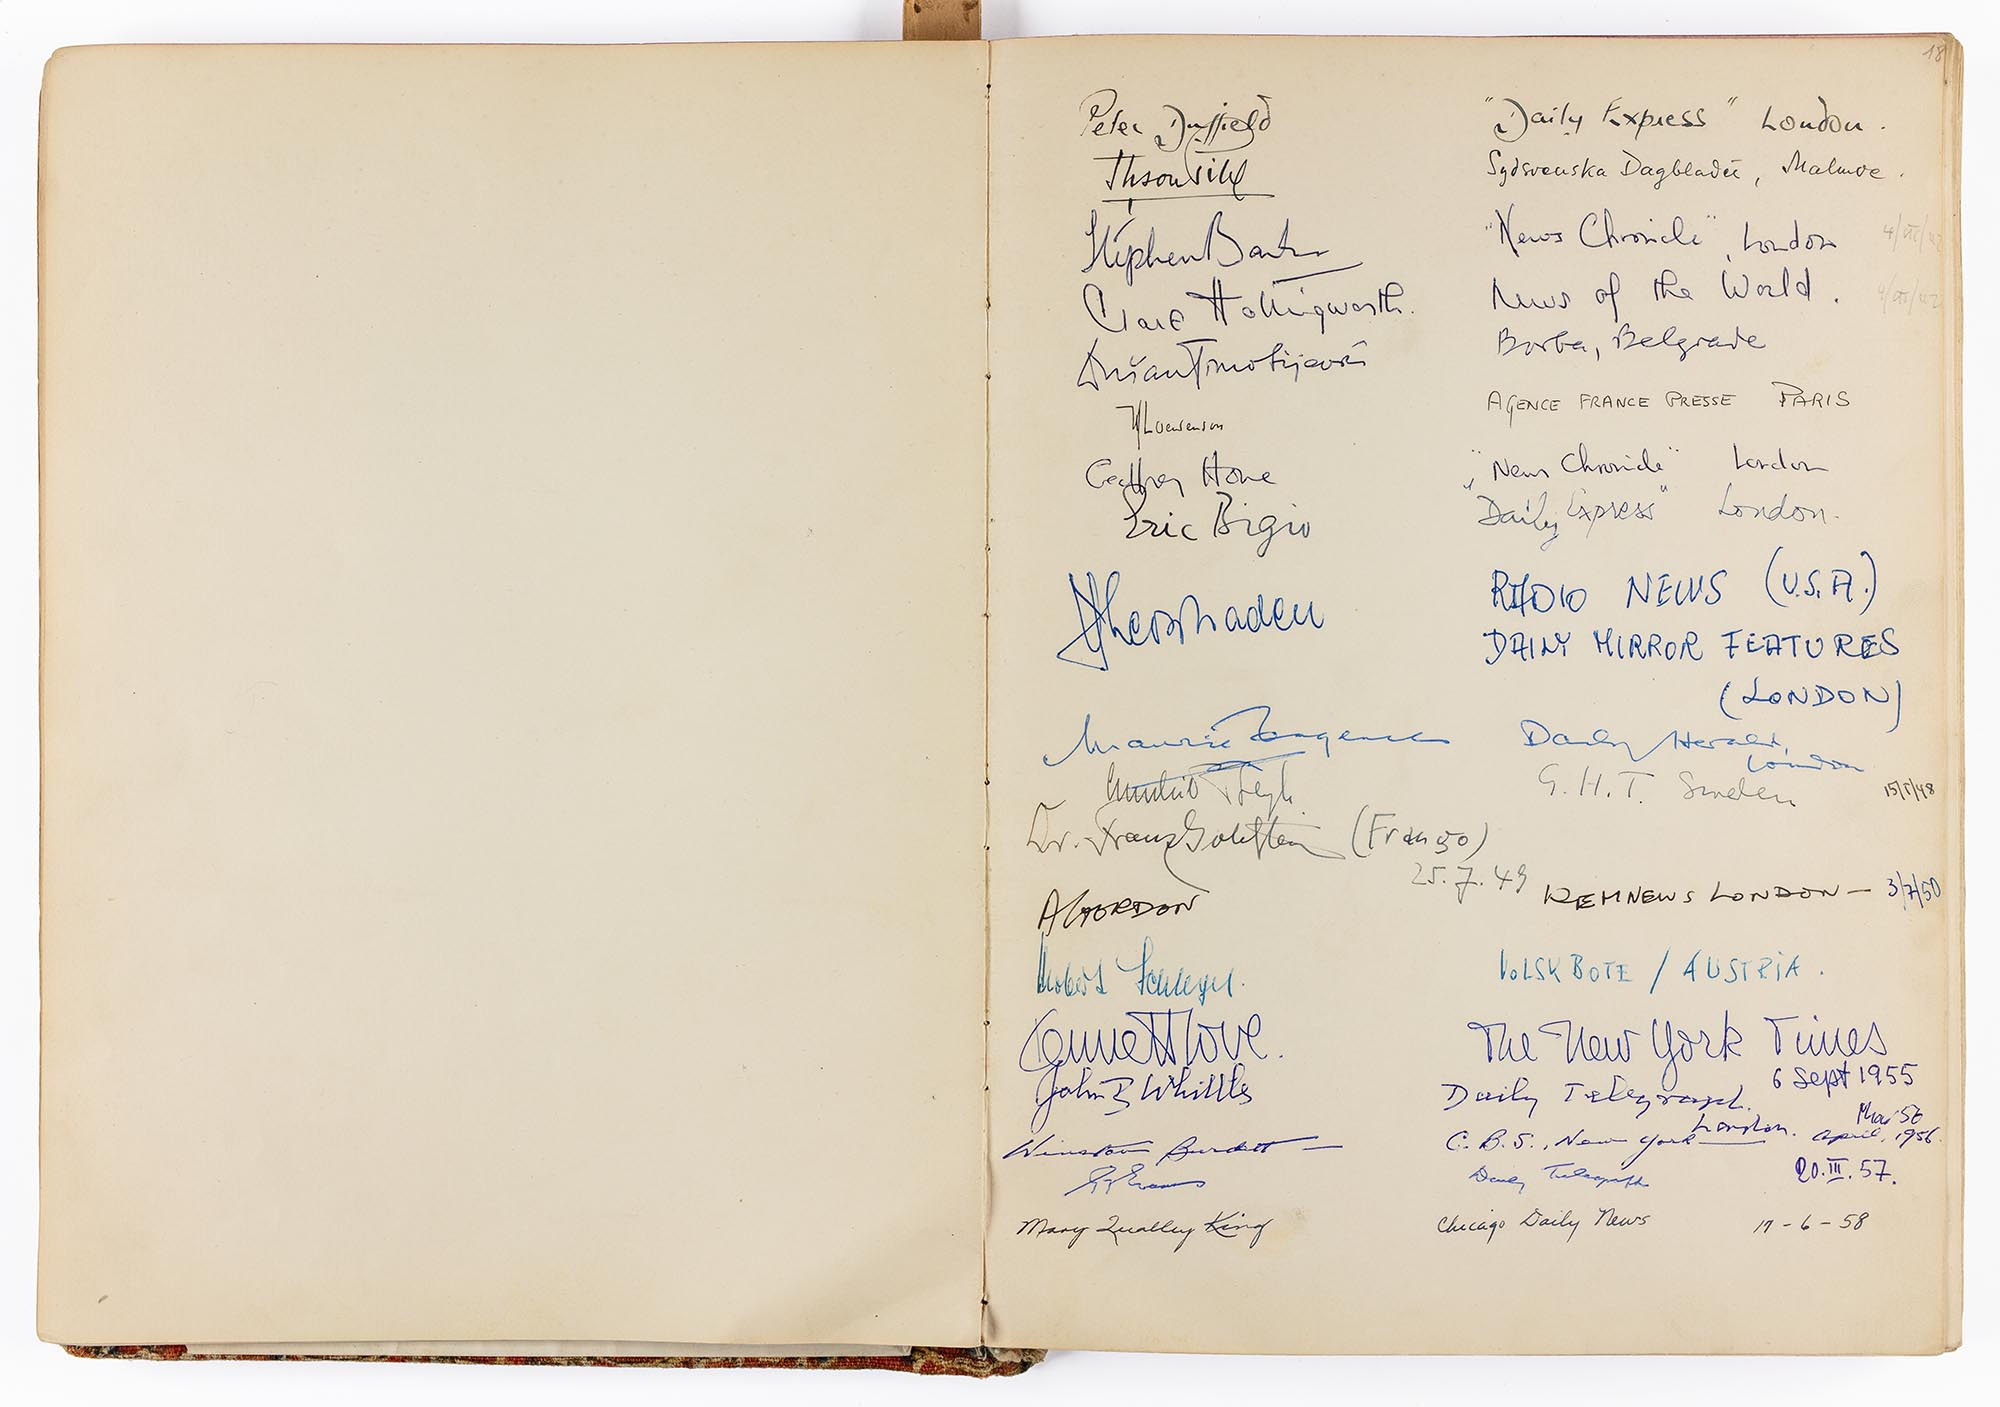 18
Peter Duffield "Daily Express" London.
Sydsvenska Dagbladet, Malmoe.
Stephen Barber "News Chronicle", London
Clare Hollingworth. News of the World.
Dušan Timotijević Borba, Belgrade
Loewenson AGENCE FRANCE PRESSE PARIS
Geoffrey Howe "News Chronicle" London
Eric Bigio "Daily Express" London.
RADIO NEWS (U.S.A.)
DAILY MIRROR FEATURES
(LONDON)
Maurice Daily Herald,
London
G.H.T. Sweden 15/5/48
Dr. Franz Goldstein (Frango)
25.7.49
A GORDON KEMNEWS LONDON — 3/7/50
VOLKSBOTE / AUSTRIA.
Kennett Love. The New York Times
6 Sept 1955
John B Whittles Daily Telegraph.
London. Mar 56
Winston Burdett C.B.S., New York April, 1956.
Evans Daily Telegraph 20.III.57.
Mary Qualley King Chicago Daily News 17-6-58